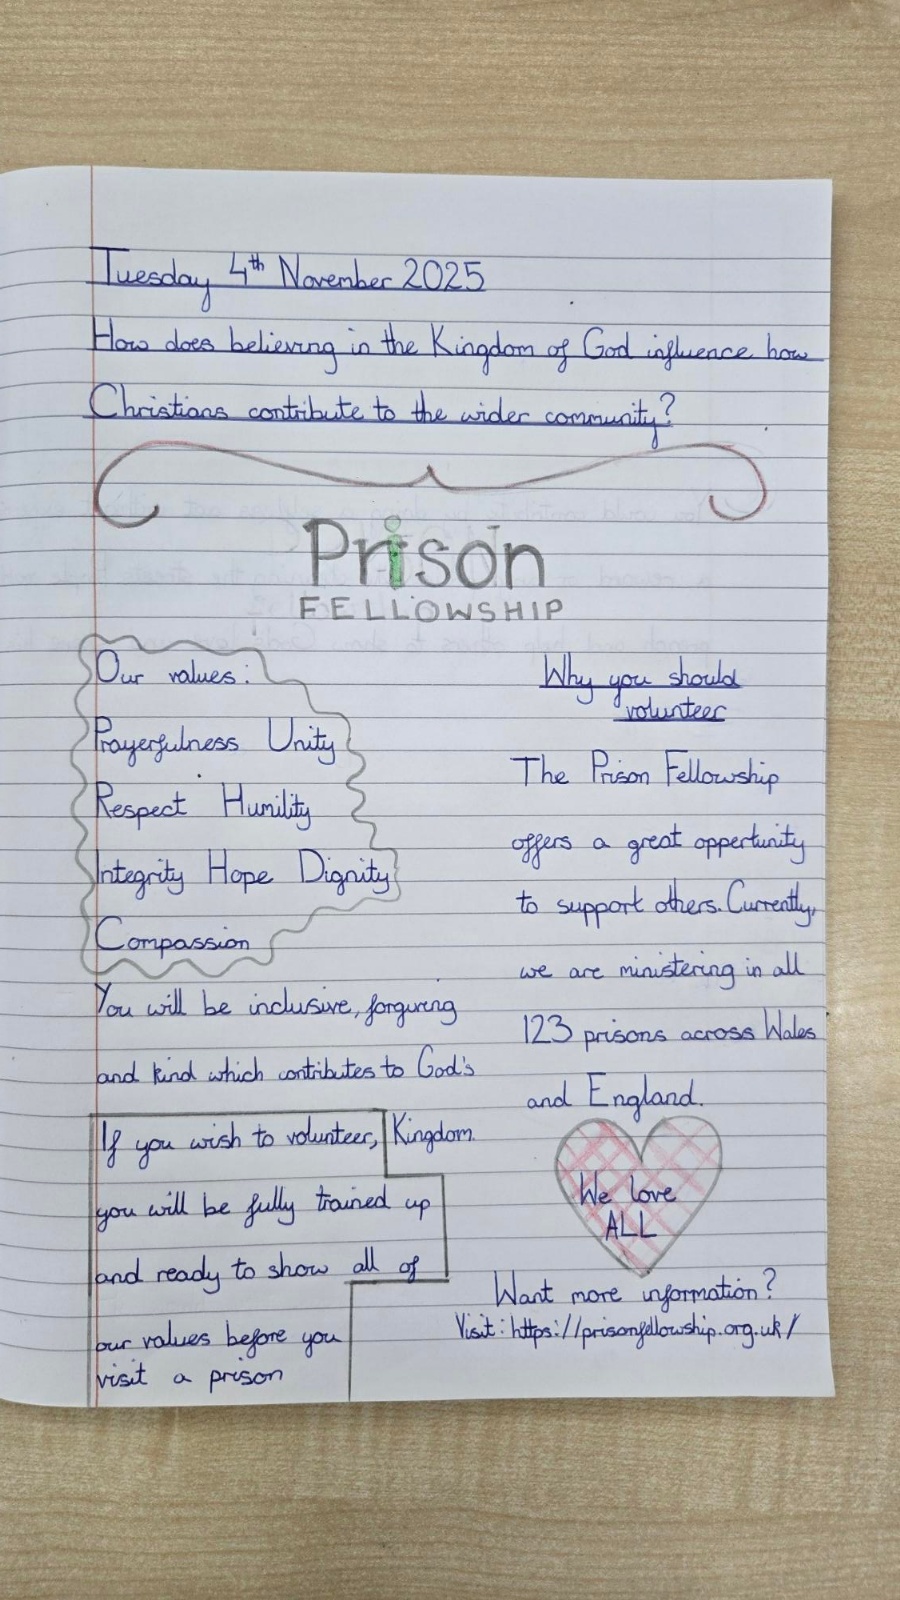 Tuesday 4th November 2025
How does believing in the Kingdom of God influence how
Christians contribute to the wider community?
Prison
FELLOWSHIP
Our values:
Prayerfulness Unity
Respect Humility
Integrity Hope Dignity
Compassion
You will be inclusive, forgiving
and kind which contributes to God's
Kingdom.
If you wish to volunteer,
you will be fully trained up
and ready to show all of
our values before you
visit a prison
Why you should
volunteer
The Prison Fellowship
offers a great oppertunity
to support others. Currently,
we are ministering in all
123 prisons across Wales
and England.
We love
ALL
Want more information?
Visit: https://prisonfellowship.org.uk/